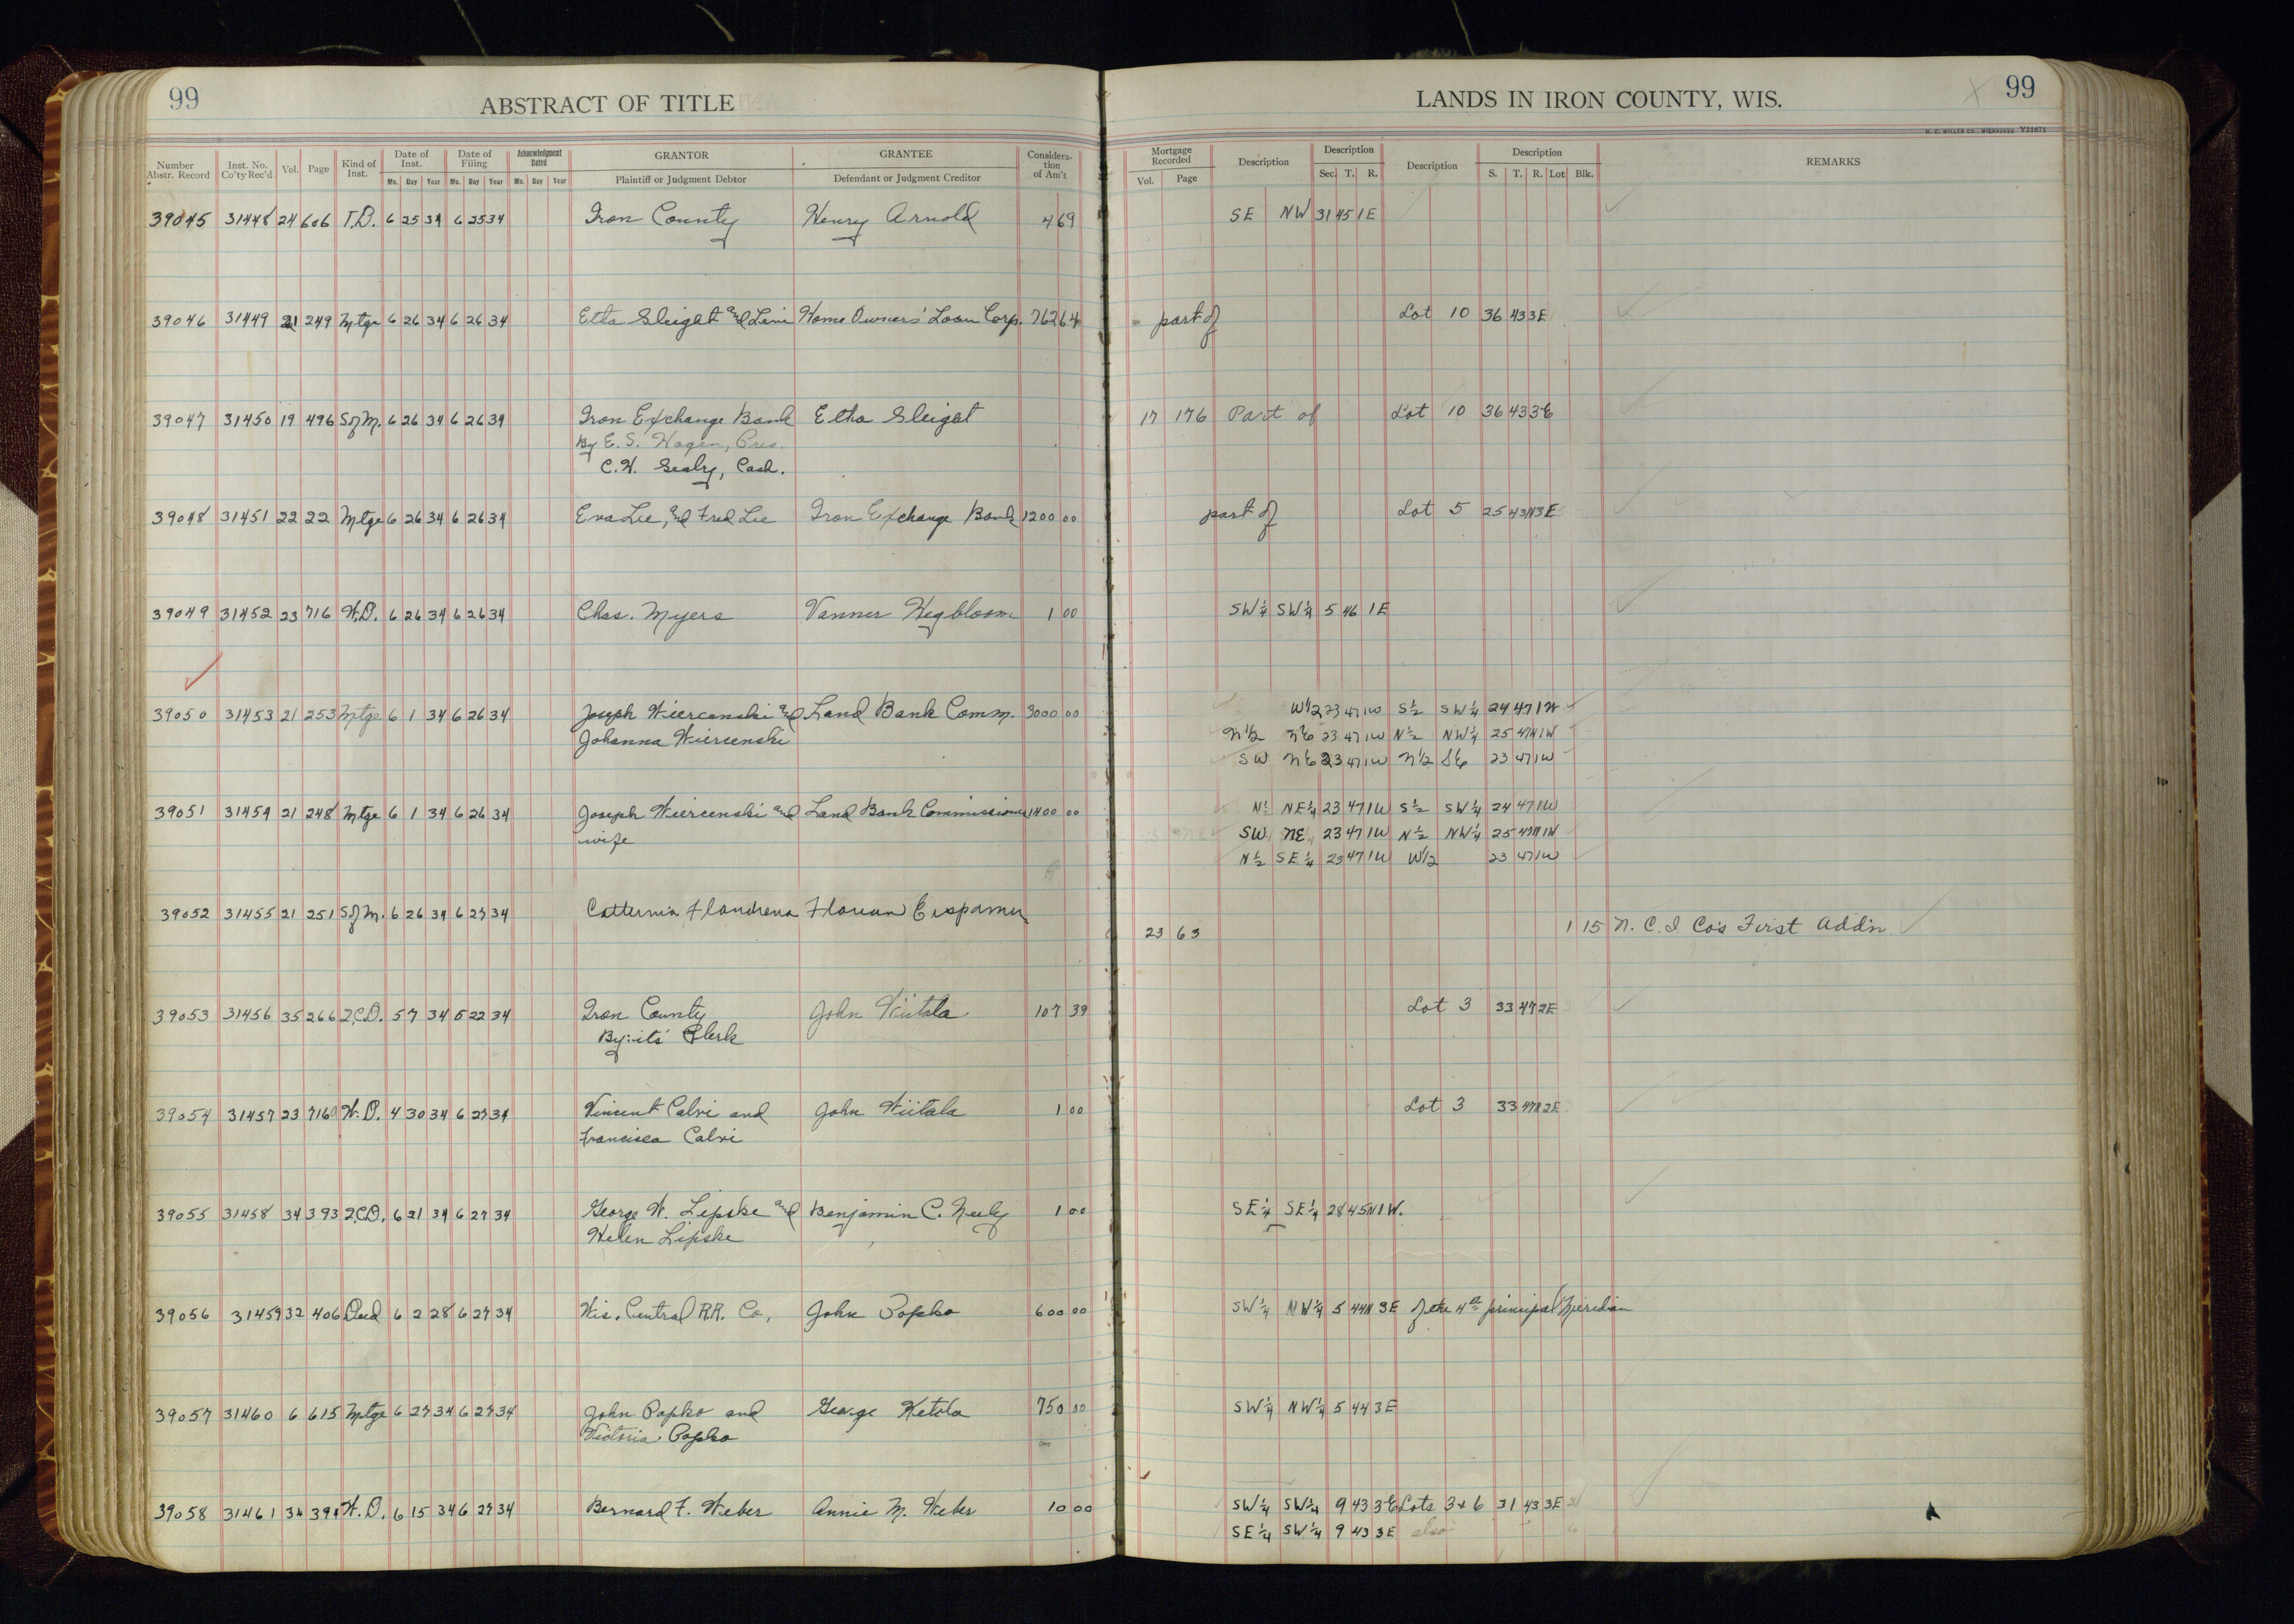 99
ABSTRACT OF TITLE
LANDS IN IRON COUNTY, WIS.
99
H. C. MILLER CO., MILWAUKEE Y21671
Number Abstr. Record | Inst. No. Co'ty Rec'd | Vol. | Page | Kind of Inst. | Date of Inst. Mo. Day Year | Date of Filing Mo. Day Year | Acknowledgment Dated Mo. Day Year | GRANTOR Plaintiff or Judgment Debtor | GRANTEE Defendant or Judgment Creditor | Consideration of Am't | Mortgage Recorded Vol. Page | Description | Description Sec. T. R. | Description | Description S. T. R. Lot Blk. | REMARKS
39045 31448 24 606 T.D. 6 25 34 6 25 34 Iron County Henry Arnold 4 69 SE NW 31 45 1E
39046 31449 21 249 Mtge 6 26 34 6 26 34 Etta Sleight and Levi Home Owners' Loan Corp. 762 64 part of Lot 10 36 43 3E
39047 31450 19 496 S of M. 6 26 34 6 26 34 Iron Exchange Bank Etta Sleight 17 176 Part of Lot 10 36 43 3E
By E. S. Hagen, Pres.
C. H. Cash.
39048 31451 22 22 Mtge 6 26 34 6 26 34 Eva Lee, and Fred Lee Iron Exchange Bank 1200 00 part of Lot 5 25 43N 3E
39049 31452 23 716 W.D. 6 26 34 6 26 34 Chas. Myers Vanner Hegbloom 1 00 SW¼ SW¼ 5 46 1E
39050 31453 21 253 Mtge 6 1 34 6 26 34 Joseph Wiercenski and Land Bank Comm. 3000 00 W1/2 23 47 1W S½ SW¼ 24 47 1W
Johanna Wiercenski N1/2 NE 23 47 1W N½ NW¼ 25 47N 1W
SW NE 23 47 1W N1/2 SE 23 47 1W
39051 31454 21 248 Mtge 6 1 34 6 26 34 Joseph Wiercenski and Land Bank Commissioner 1400 00 N½ NE¼ 23 47 1W S½ SW¼ 24 47 1W
wife SW NE 23 47 1W N½ NW¼ 25 47N 1W
N½ SE¼ 23 47 1W W1/2 23 47 1W
39052 31455 21 251 S of M. 6 26 34 6 27 34
23 63 1 15 N. C. I. Co's First Add'n
39053 31456 35 266 2.C.D. 5 7 34 5 22 34 Iron County John Wiitala 107 39 Lot 3 33 47 2E
By: its' Clerk
39054 31457 23 716 W.D. 4 30 34 6 27 34 Vincent Calvi and John Wiitala 1 00 Lot 3 33 47N 2E
Francisca Calvi
39055 31458 34 393 2.C.D. 6 21 34 6 27 34 George W. Lipske and Benjamin C. Neely 1 00 SE¼ SE¼ 28 45N 1W.
Helen Lipske
39056 31459 32 406 Deed 6 2 28 6 27 34 Wis. Central R.R. Co. John Popko 600 00 SW¼ NW¼ 5 44N 3E of the 4th principal Meridian
39057 31460 6 615 Mtge 6 27 34 6 27 34 John Popko and George Ketola 750 00 SW¼ NW¼ 5 44 3E
Victoria Popko
39058 31461 34 394 W.D. 6 15 34 6 27 34 Bernard F. Weber Annie M. Weber 10 00 SW¼ SW¼ 9 43 3E Lots 3 + 6 31 43 3E
SE¼ SW¼ 9 43 3E also